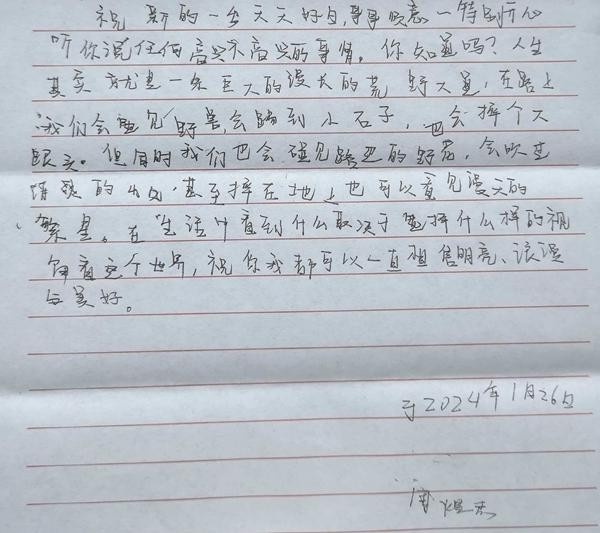 祝 新的一年天天好日,事事顺意一特别开心
听你说任何高兴不高兴的事情。你知道吗?人生
其实就是一条巨大的漫长的荒野大道,在路上
我们会遇见野兽会踢到小石子,也会摔个大
跟头。但同时我们也会碰见路边的野花,会吹至
的,甚至摔在地上也可以看见漫天的
繁星。在生活中看到什么取决于选择什么样的视
角看这个世界,祝你我都可以一直相信明亮、浪漫
与美好。
于2024年1月26日
周煜杰